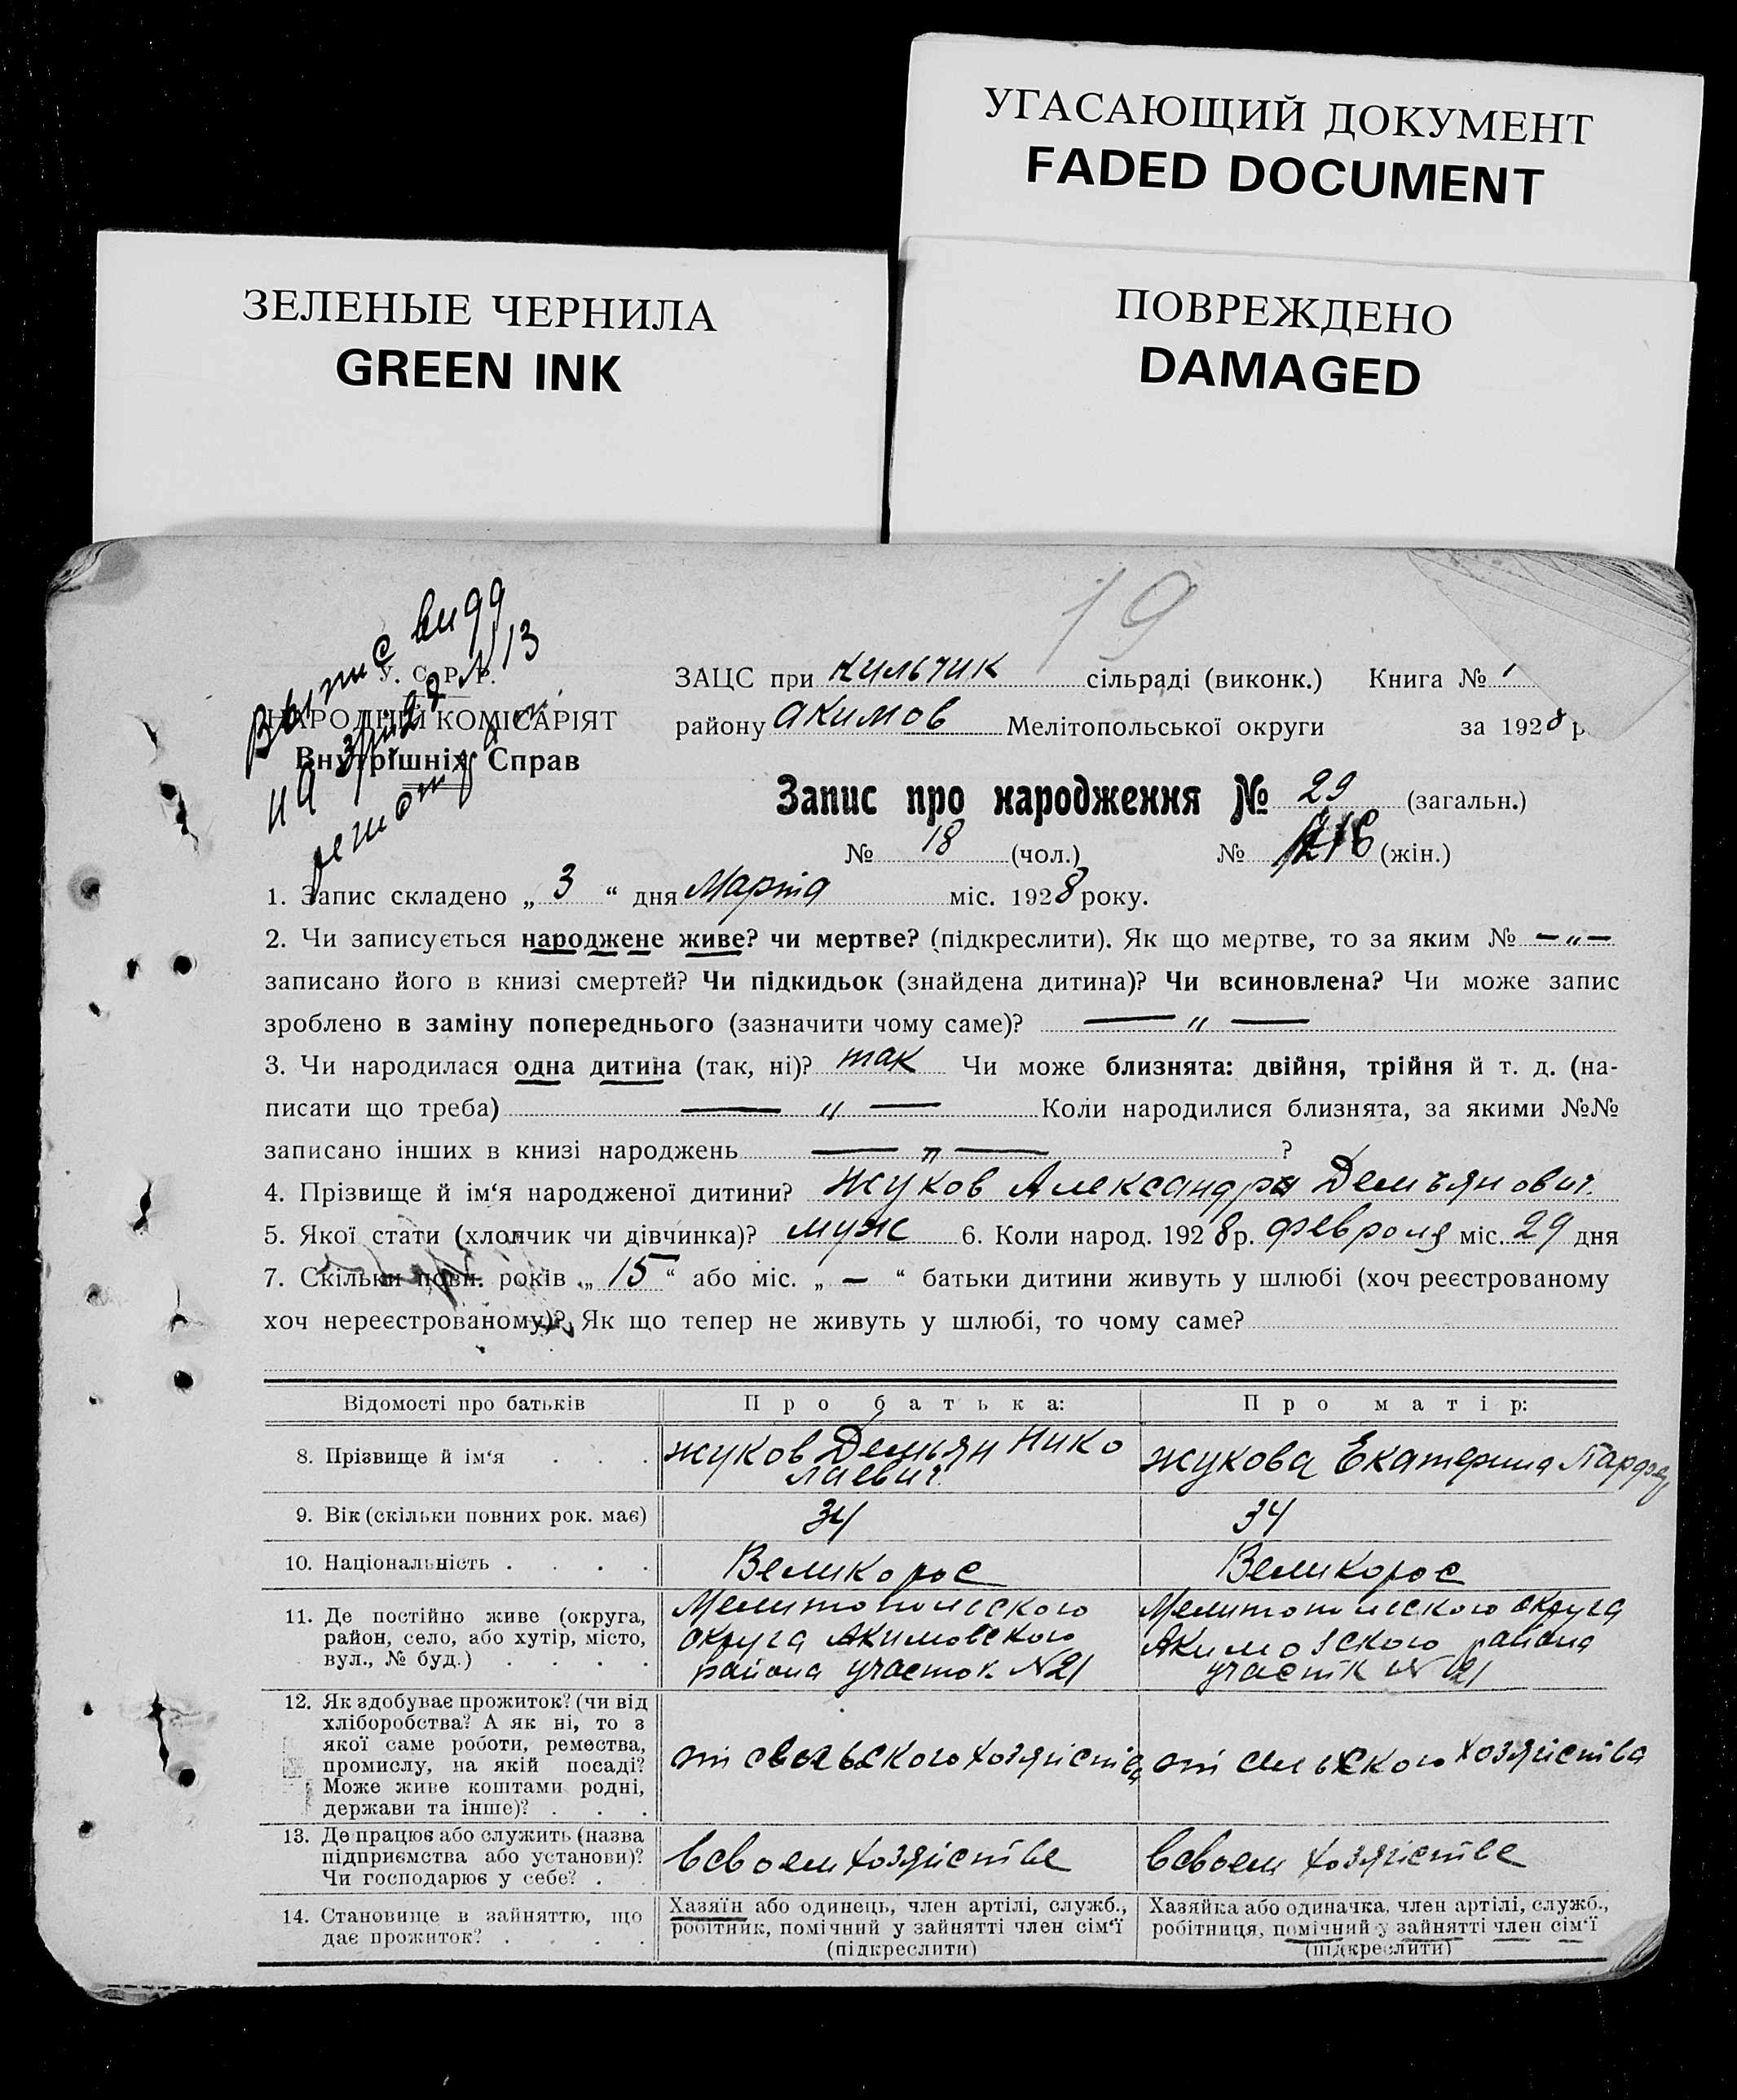 УГАСАЮЩИЙ ДОКУМЕНТ
FADED DOCUMENT
ЗЕЛЕНЫЕ ЧЕРНИЛА
GREEN INK
ПОВРЕЖДЕНО
DAMAGED
19
Выпис видд
на
У. С. Р. Р.
НАРОДНІЙ КОМІСАРІЯТ
Внутрішніх Справ
ЗАЦС при Кильчик сільраді (виконк.) Книга № 1
району Акимов Мелітопольської округи за 1928 р
Запис про народження № 29 (загальн.)
№ 18 (чол.) № (жін.)
1. Запис складено „ 3 “ дня Марта міс. 1928 року.
2. Чи записується народжене живе? чи мертве? (підкреслити). Як що мертве, то за яким № — „ —
записано його в книзі смертей? Чи підкидьок (знайдена дитина)? Чи всиновлена? Чи може запис
зроблено в заміну попереднього (зазначити чому саме)? — „ —
3. Чи народилася одна дитина (так, ні)? так Чи може близнята: двійня, трійня й т. д. (на-
писати що треба) — „ — Коли народилися близнята, за якими №№
записано інших в книзі народжень — „ — ?
4. Прізвище й ім‘я народженої дитини? Жуков Александр Демъянович.
5. Якої стати (хлопчик чи дівчинка)? муж 6. Коли народ. 1928 р. февроля міс. 29 дня
7. Скільки повн. років „ 15 “ або міс. „ — “ батьки дитини живуть у шлюбі (хоч реєстрованому
хоч нереєстрованому)? Як що тепер не живуть у шлюбі, то чому саме?
Відомості про батьків Про батька: Про матір:
8. Прізвище й ім‘я . . . Жуков Демьян Нико
лаевич Жукова Екатерина
9. Вік (скільки повних рок. має) 34 34
10. Національність . . . . Великорос Великорос
11. Де постійно живе (округа,
район, село, або хутір, місто,
вул., № буд.) . . . .
Мелитополского
округа Акимовского
района участок N 21
Мелитополского округа
Акимовского района
участк N 21
12. Як здобуває прожиток? (чи від
хліборобства? А як ні, то з
якої саме роботи, ремества,
промислу, на якій посаді?
Може живе коштами родні,
держави та інше)? . . .
от свельского хозяиства
от сельского хозяиства
13. Де працює або служить (назва
підприємства або установи)?
Чи господарює у себе? .
всвоем хозяистве
всвоем хозяистве
14. Становище в зайняттю, що
дає прожиток? . . . .
Хазяїн або одинець, член артілі, служб.,
робітник, помічний у зайнятті член сім‘ї
(підкреслити)
Хазяйка або одиначка, член артілі, служб.,
робітниця, помічний у зайнятті член сім‘ї
(підкреслити)